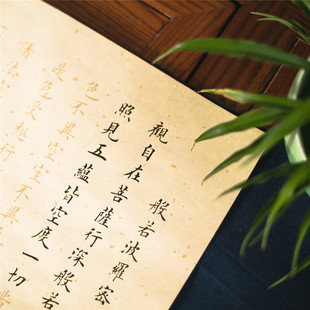 般若波羅密
觀自在菩薩行深般若
照見五蘊皆空度一切
色不異空空不異
是色受想行